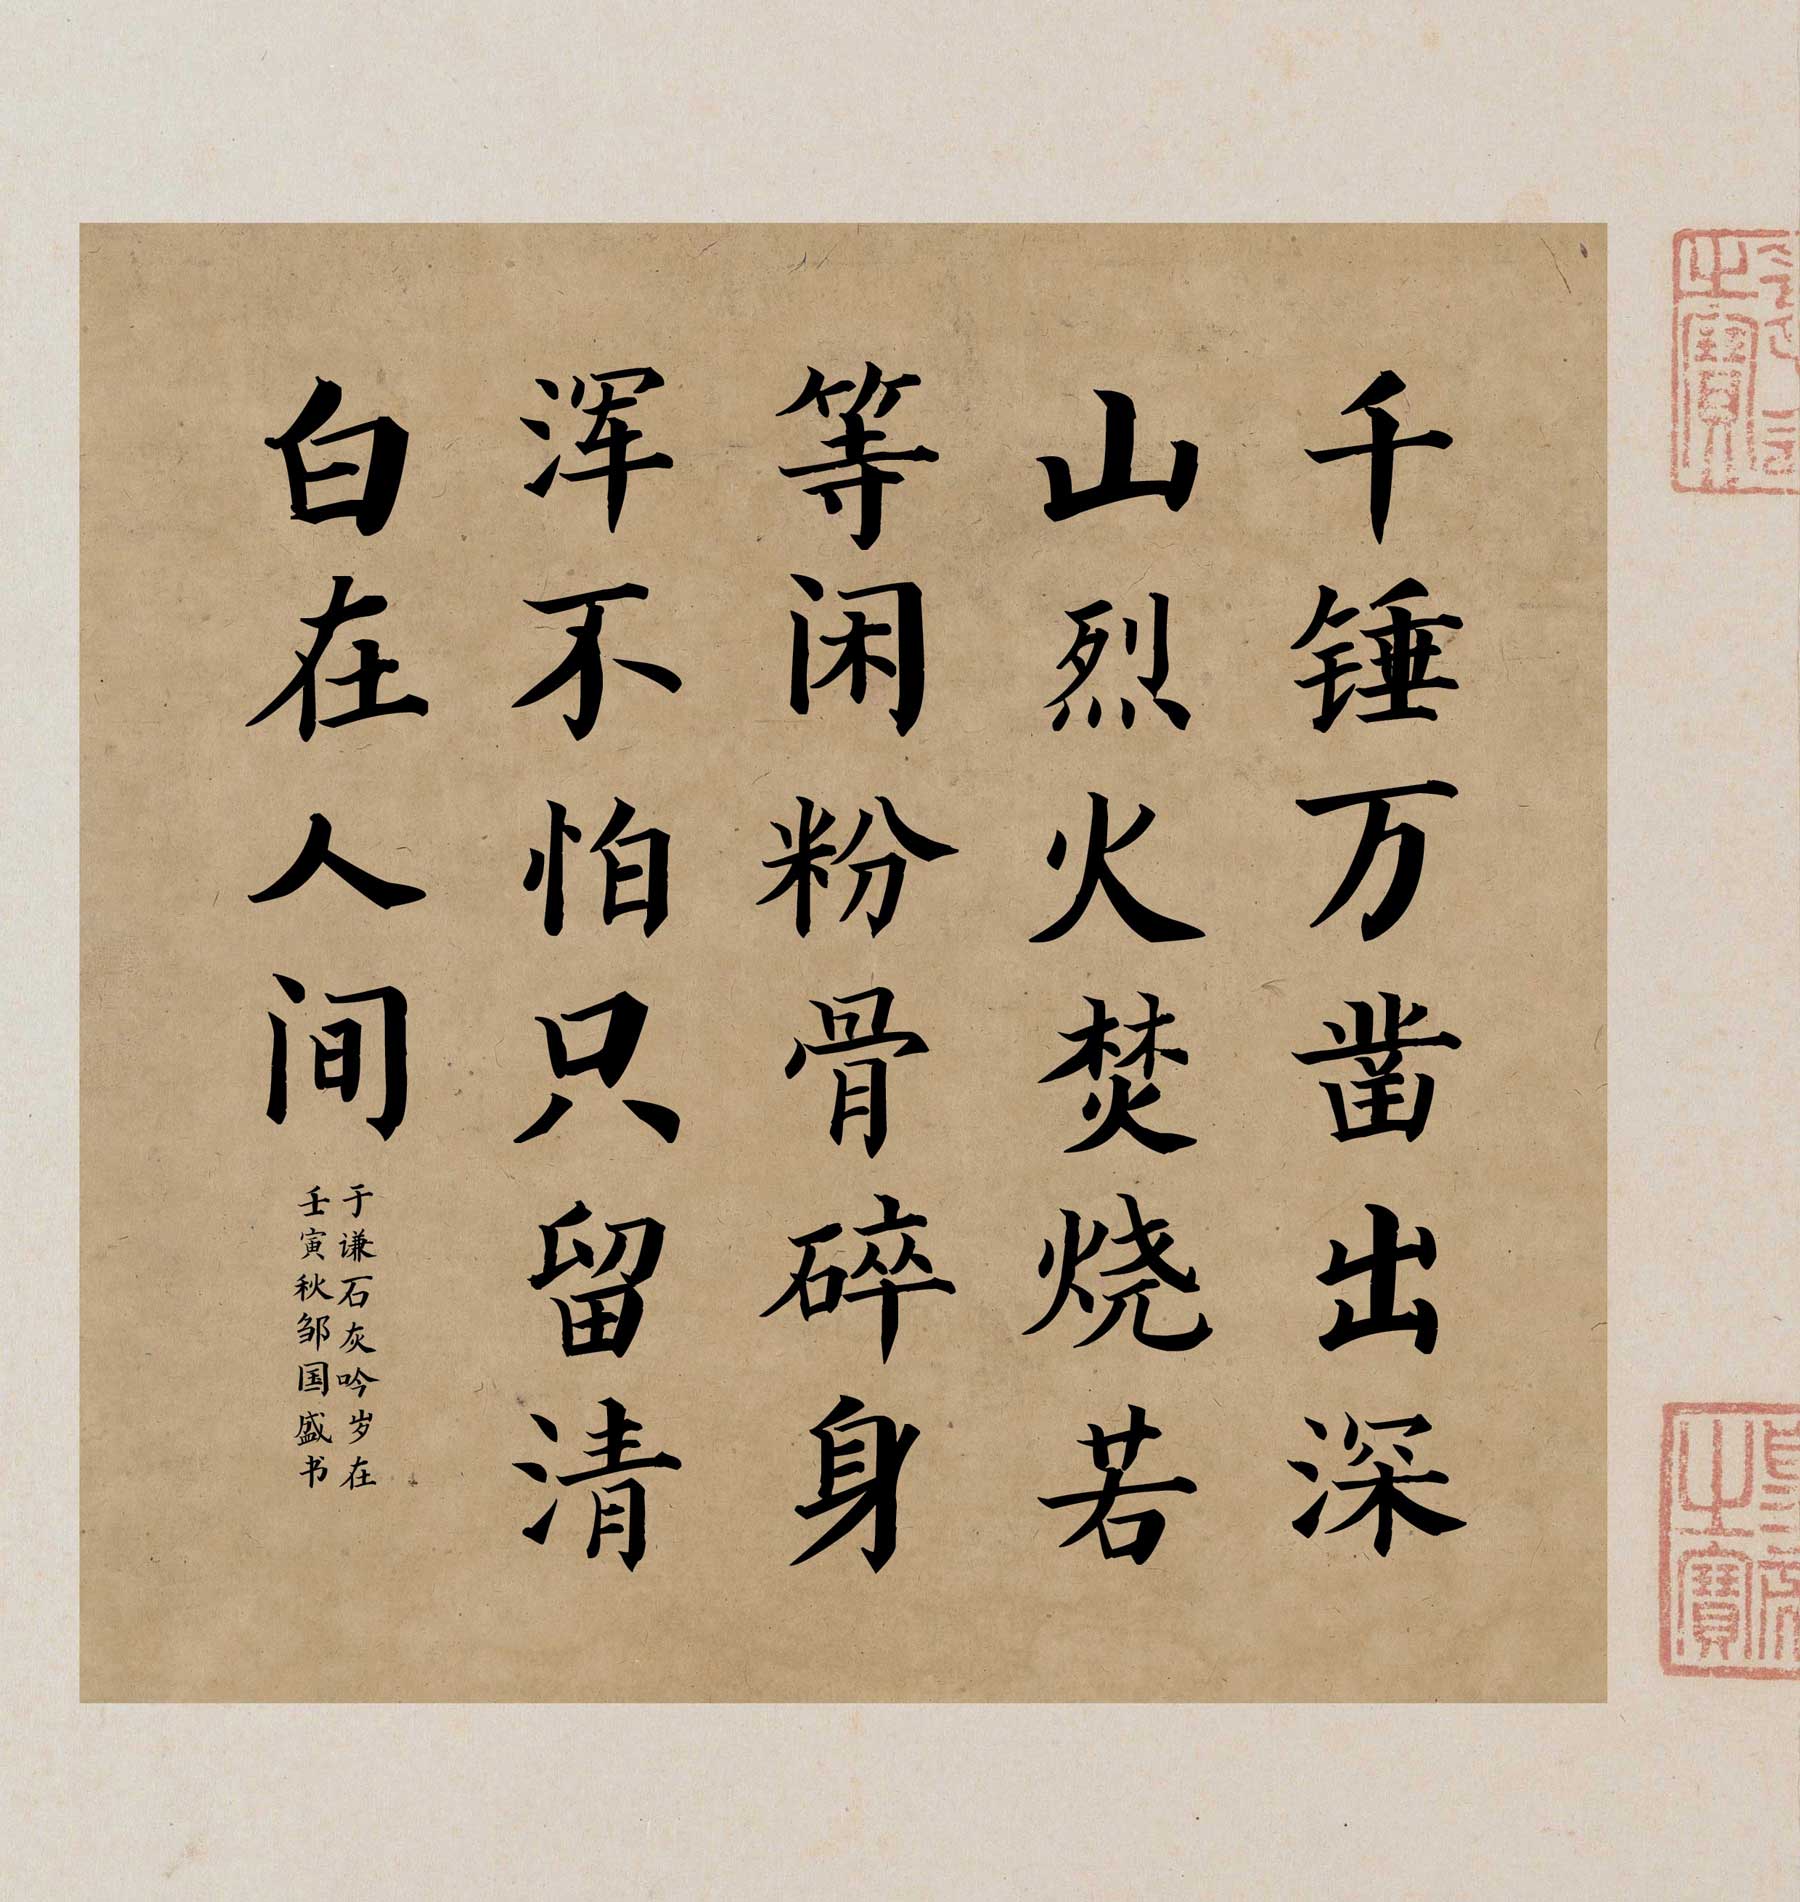 千锤万凿出深
山烈火焚烧若
等闲粉骨碎身
浑不怕只留清
白在人间
于谦石灰吟岁在
壬寅秋邹国盛书
之寶
之寶